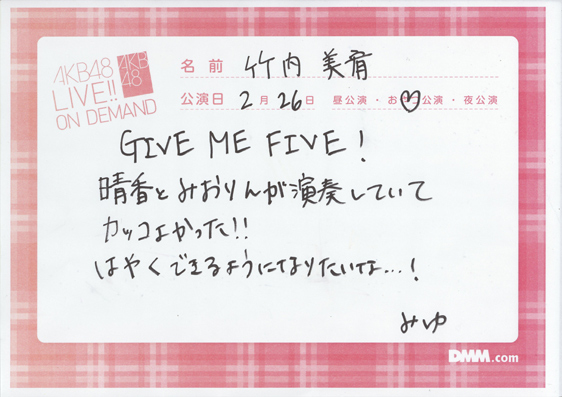 AKB48
LIVE!!
ON DEMAND
AKB
48
名前 竹内 美宥
公演日 2月26日 昼公演・お公演・夜公演
GIVE ME FIVE!
晴香とみおりんが演奏していて
カッコよかった!!
はやくできるようになりたいな…!
みゆ
DMM.com